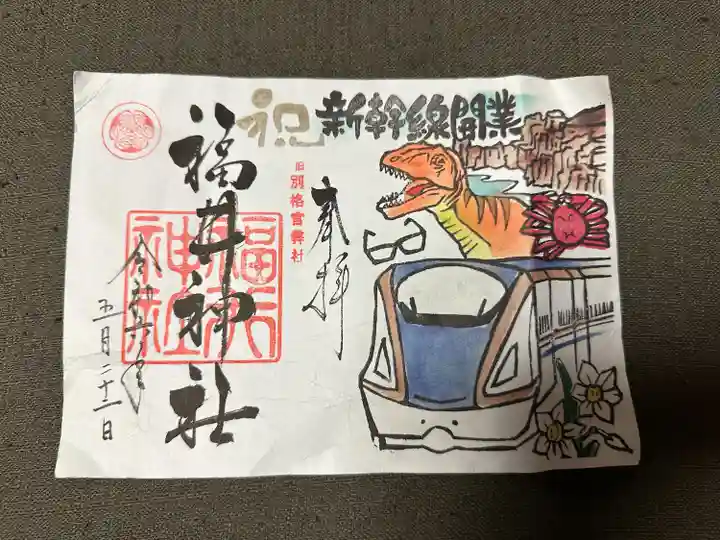 祝 新幹線開業
奉拝
旧別格官幣社
福井神社
令和六年
五月二十一日